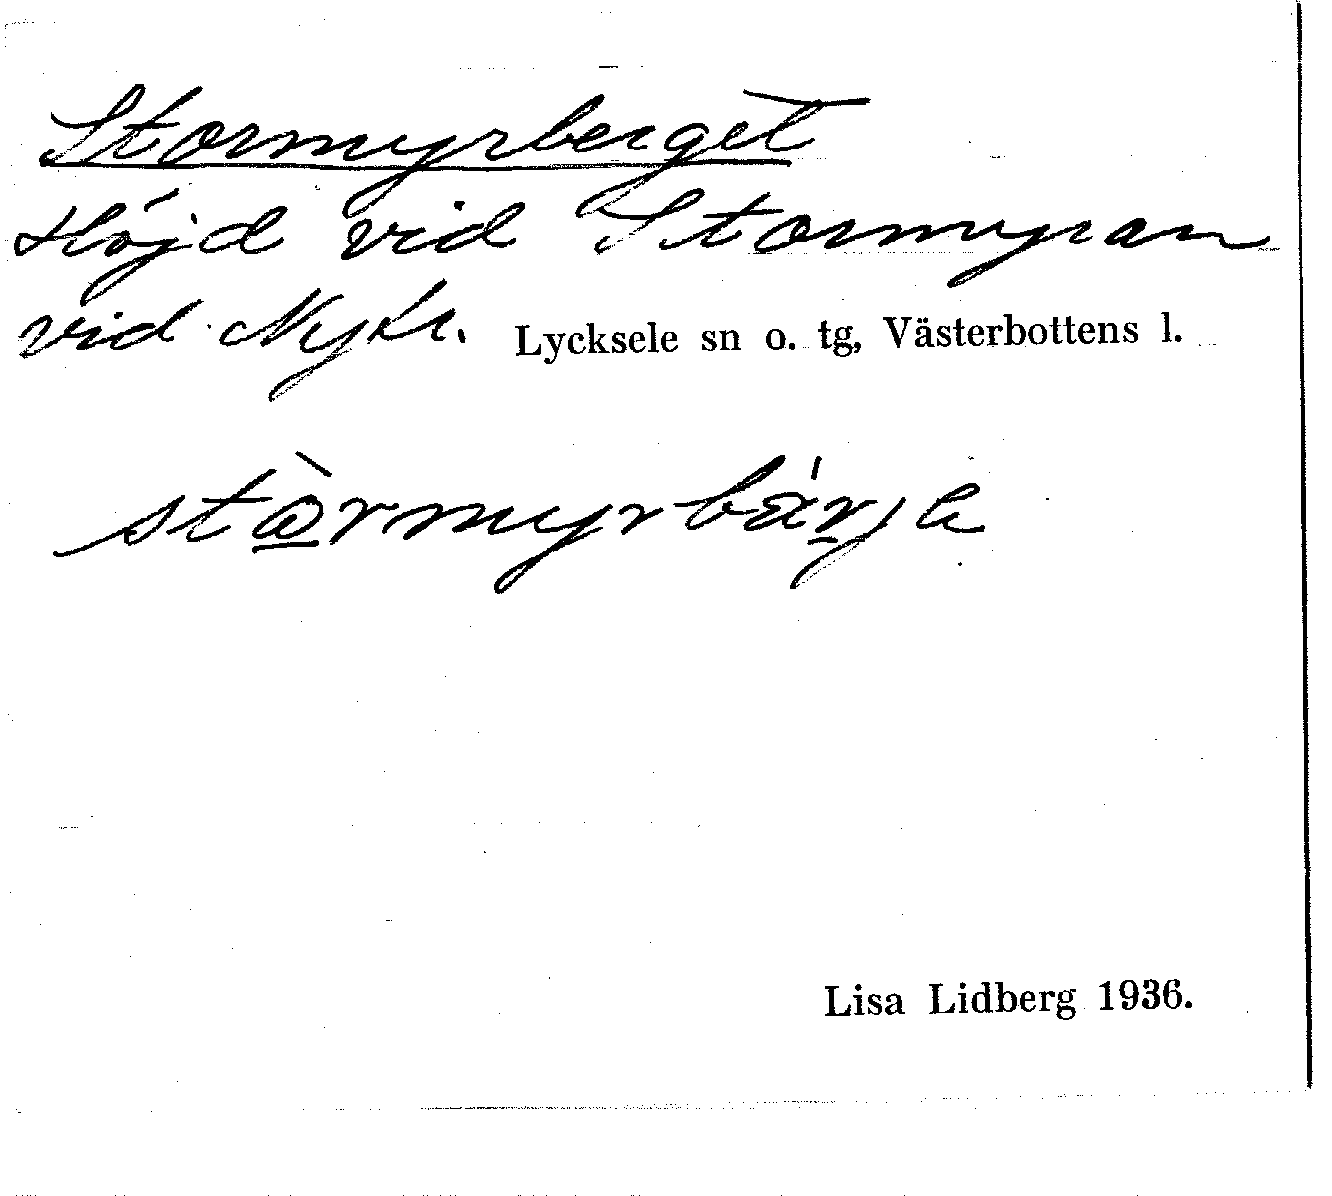 Stormyrberget
Höjd vid Stormyran
vid Nykr. Lycksele sn o. tg, Västerbottens l.
stòrmyrbárjə
Lisa Lidberg 1936.